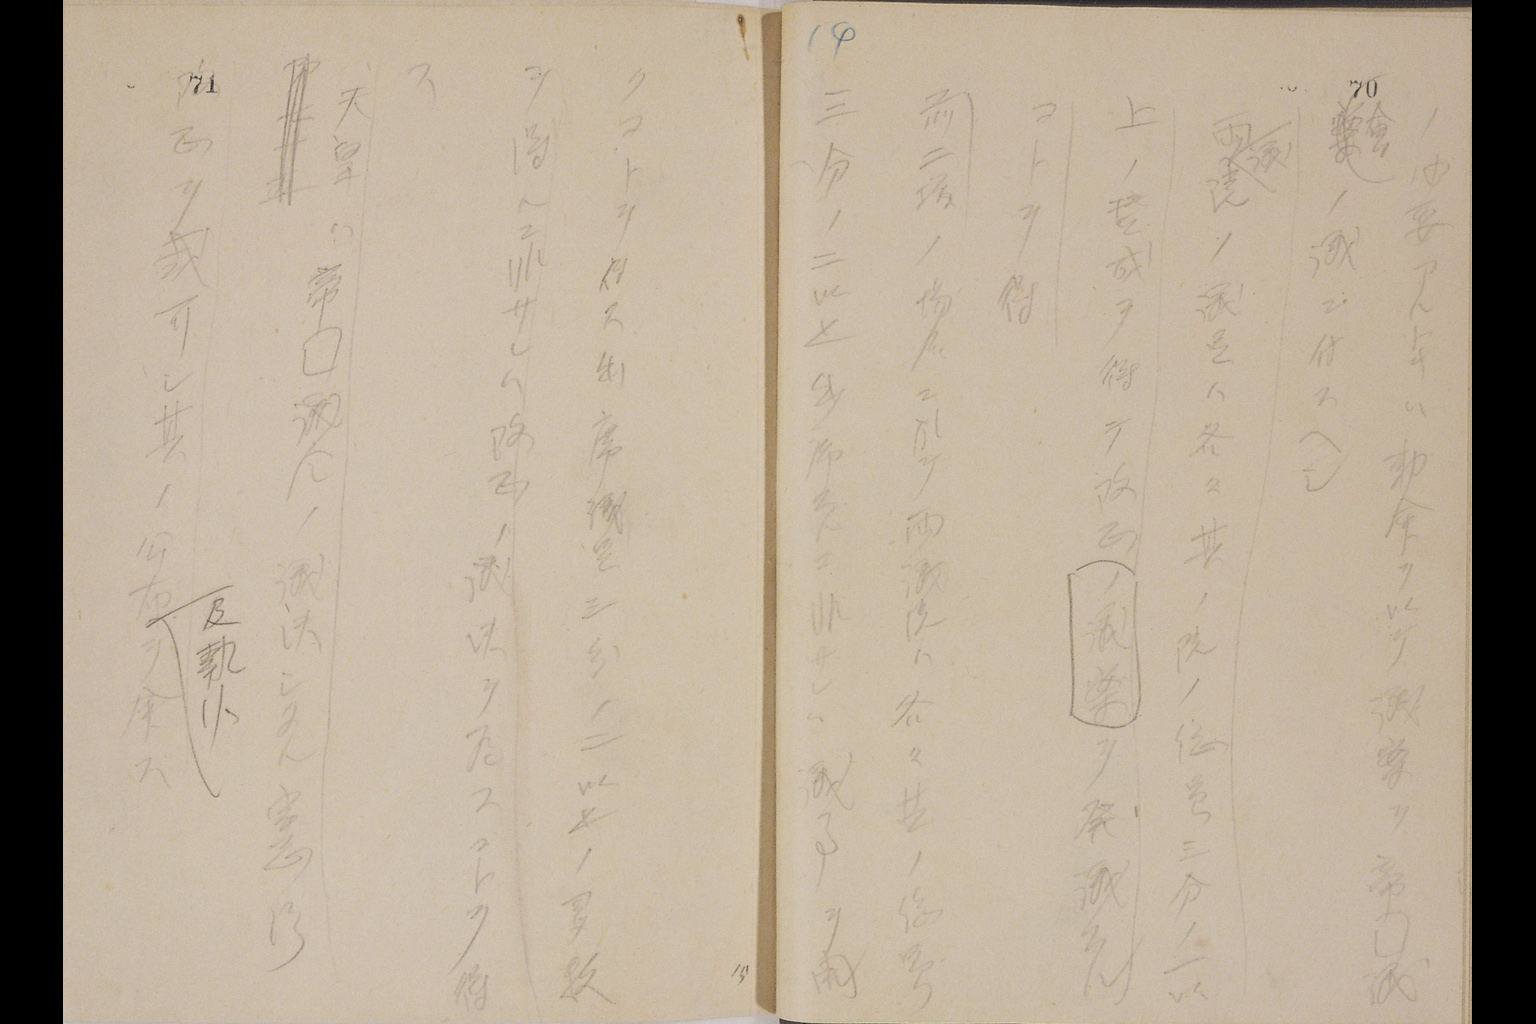 70
ノ必要アルトキハ勅命ヲ以テ議案ヲ帝国議
会ノ議ニ付スヘシ
両議院ノ議員ハ各々其ノ院ノ総員三分ノ二以
上ノ賛成ヲ得テ改正ノ議案ヲ発議スル
コトヲ得
前二項ノ場合ニ於テ両議院ハ各々其ノ総員
三分ノ二以上出席スルニ非サレハ議事ヲ開
14
71
クコトヲ得ス出席議員三分ノ二以上ノ多数
ヲ得ルニ非サレハ改正ノ議決ヲ為スコトヲ得
ス
天皇ハ帝国議会ノ議決シタル憲法
改正ヲ裁可シ其ノ公布
及執行
ヲ命ス